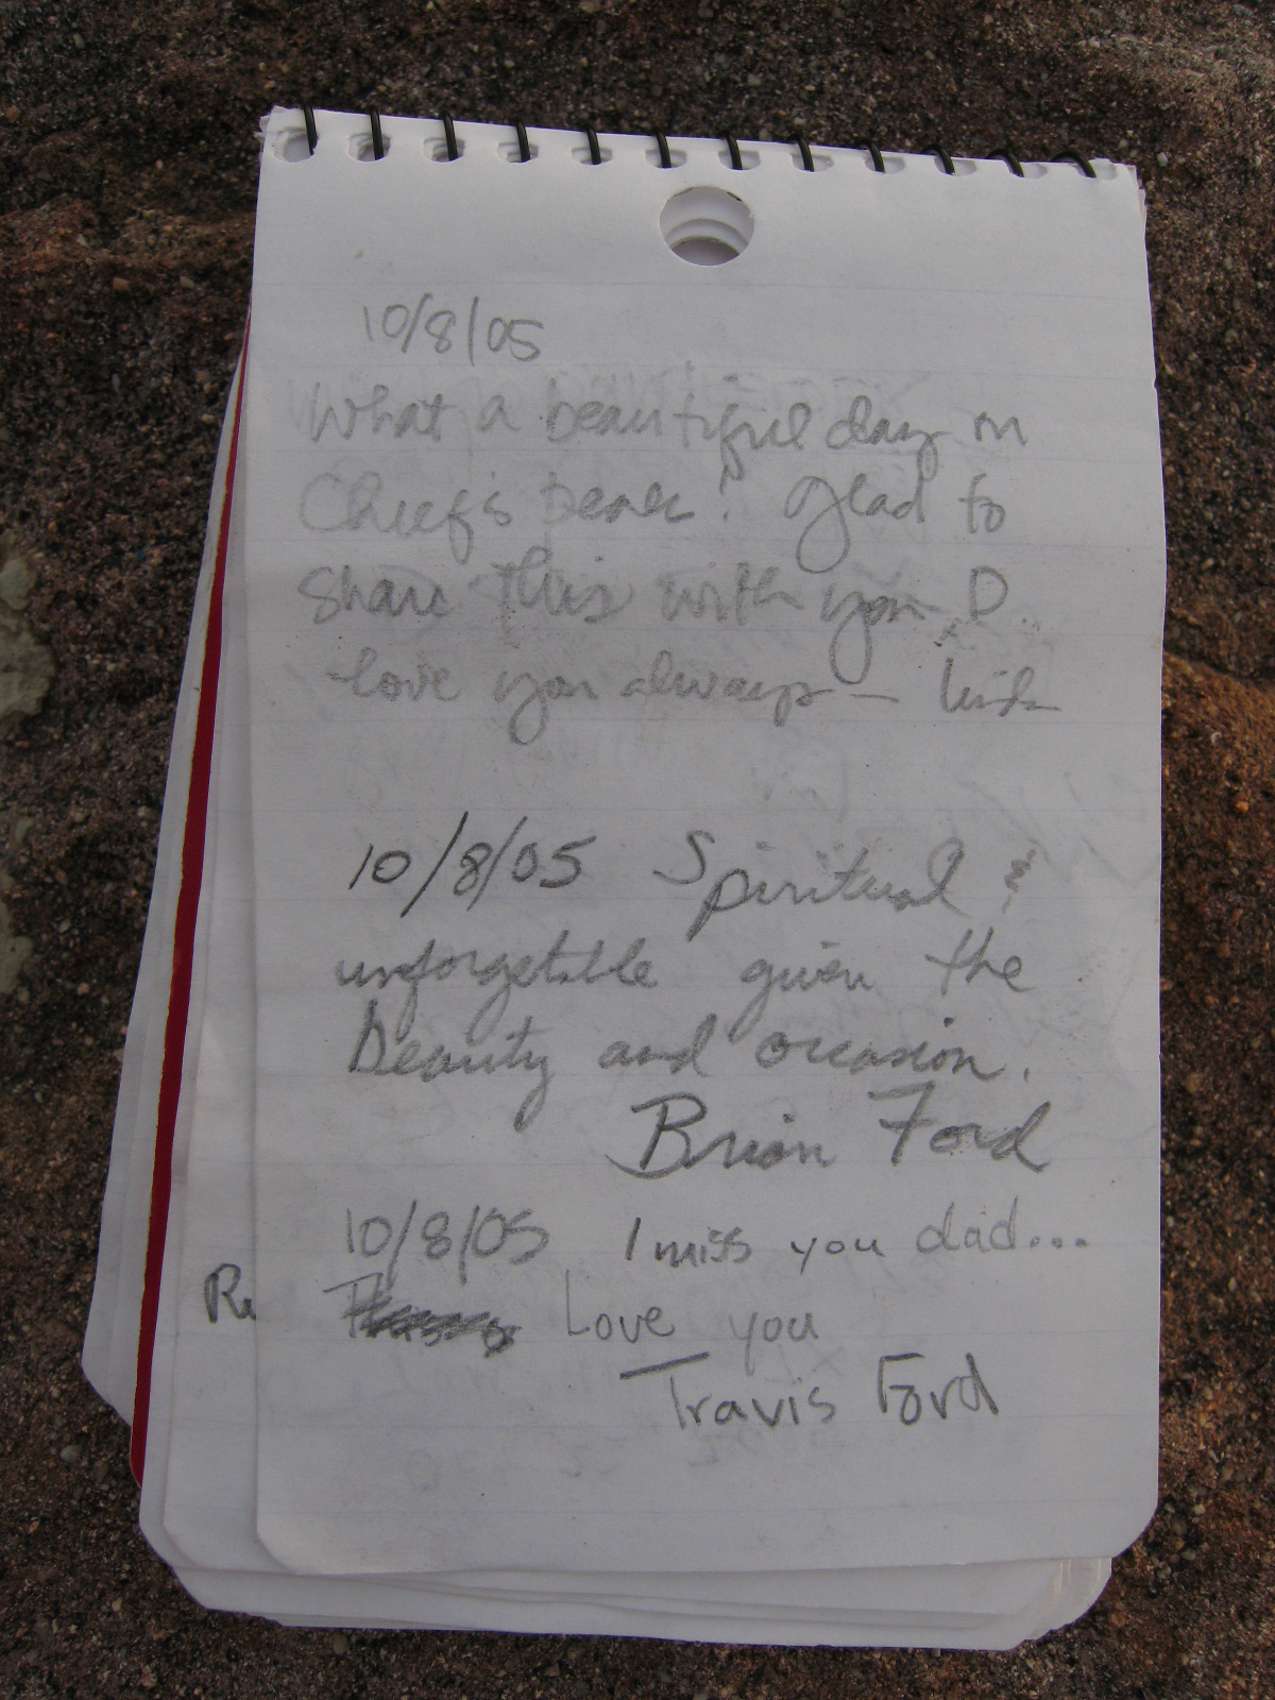 10/8/05
What a beautiful day on
Chief's Peak! Glad to
share this with you, D
love you always — Linda
10/8/05 Spiritual &
unforgetable given the
beauty and occasion.
Brian Ford
10/8/05 I miss you dad...
Love you
Travis Ford
Re